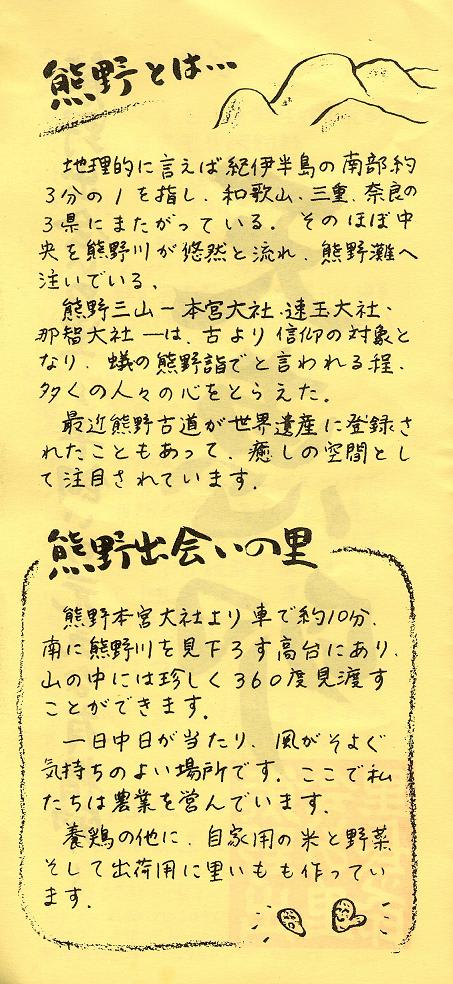 熊野とは…
地理的に言えば紀伊半島の南部約
3分の1を指し、和歌山、三重、奈良の
3県にまたがっている。そのほぼ中
央を熊野川が悠然と流れ、熊野灘へ
注いでいる。
熊野三山ー本宮大社・速玉大社・
那智大社―は、古より信仰の対象と
なり、蟻の熊野詣でと言われる程、
多くの人々の心をとらえた。
最近熊野古道が世界遺産に登録さ
れたこともあって、癒しの空間とし
て注目されています。
熊野出会いの里
熊野本宮大社より車で約10分、
南に熊野川を見下ろす高台にあり、
山の中には珍しく360度見渡す
ことができます。
一日中日が当たり、風がそよぐ
気持ちのよい場所です。ここで私
たちは農業を営んでいます。
養鶏の他に、自家用の米と野菜
そして出荷用に里いもも作ってい
ます。